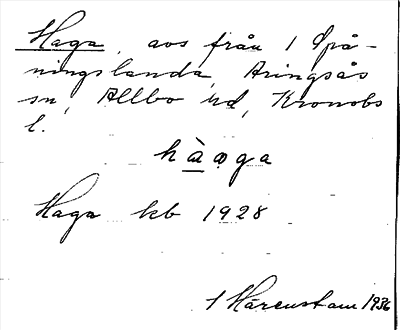 Haga, avs från 1 Spå-
ningslanda, Aringsås
sn, Allbo hd, Kronobs
l.
hàꜵga
Haga kb 1928
1 Härenstam 1936